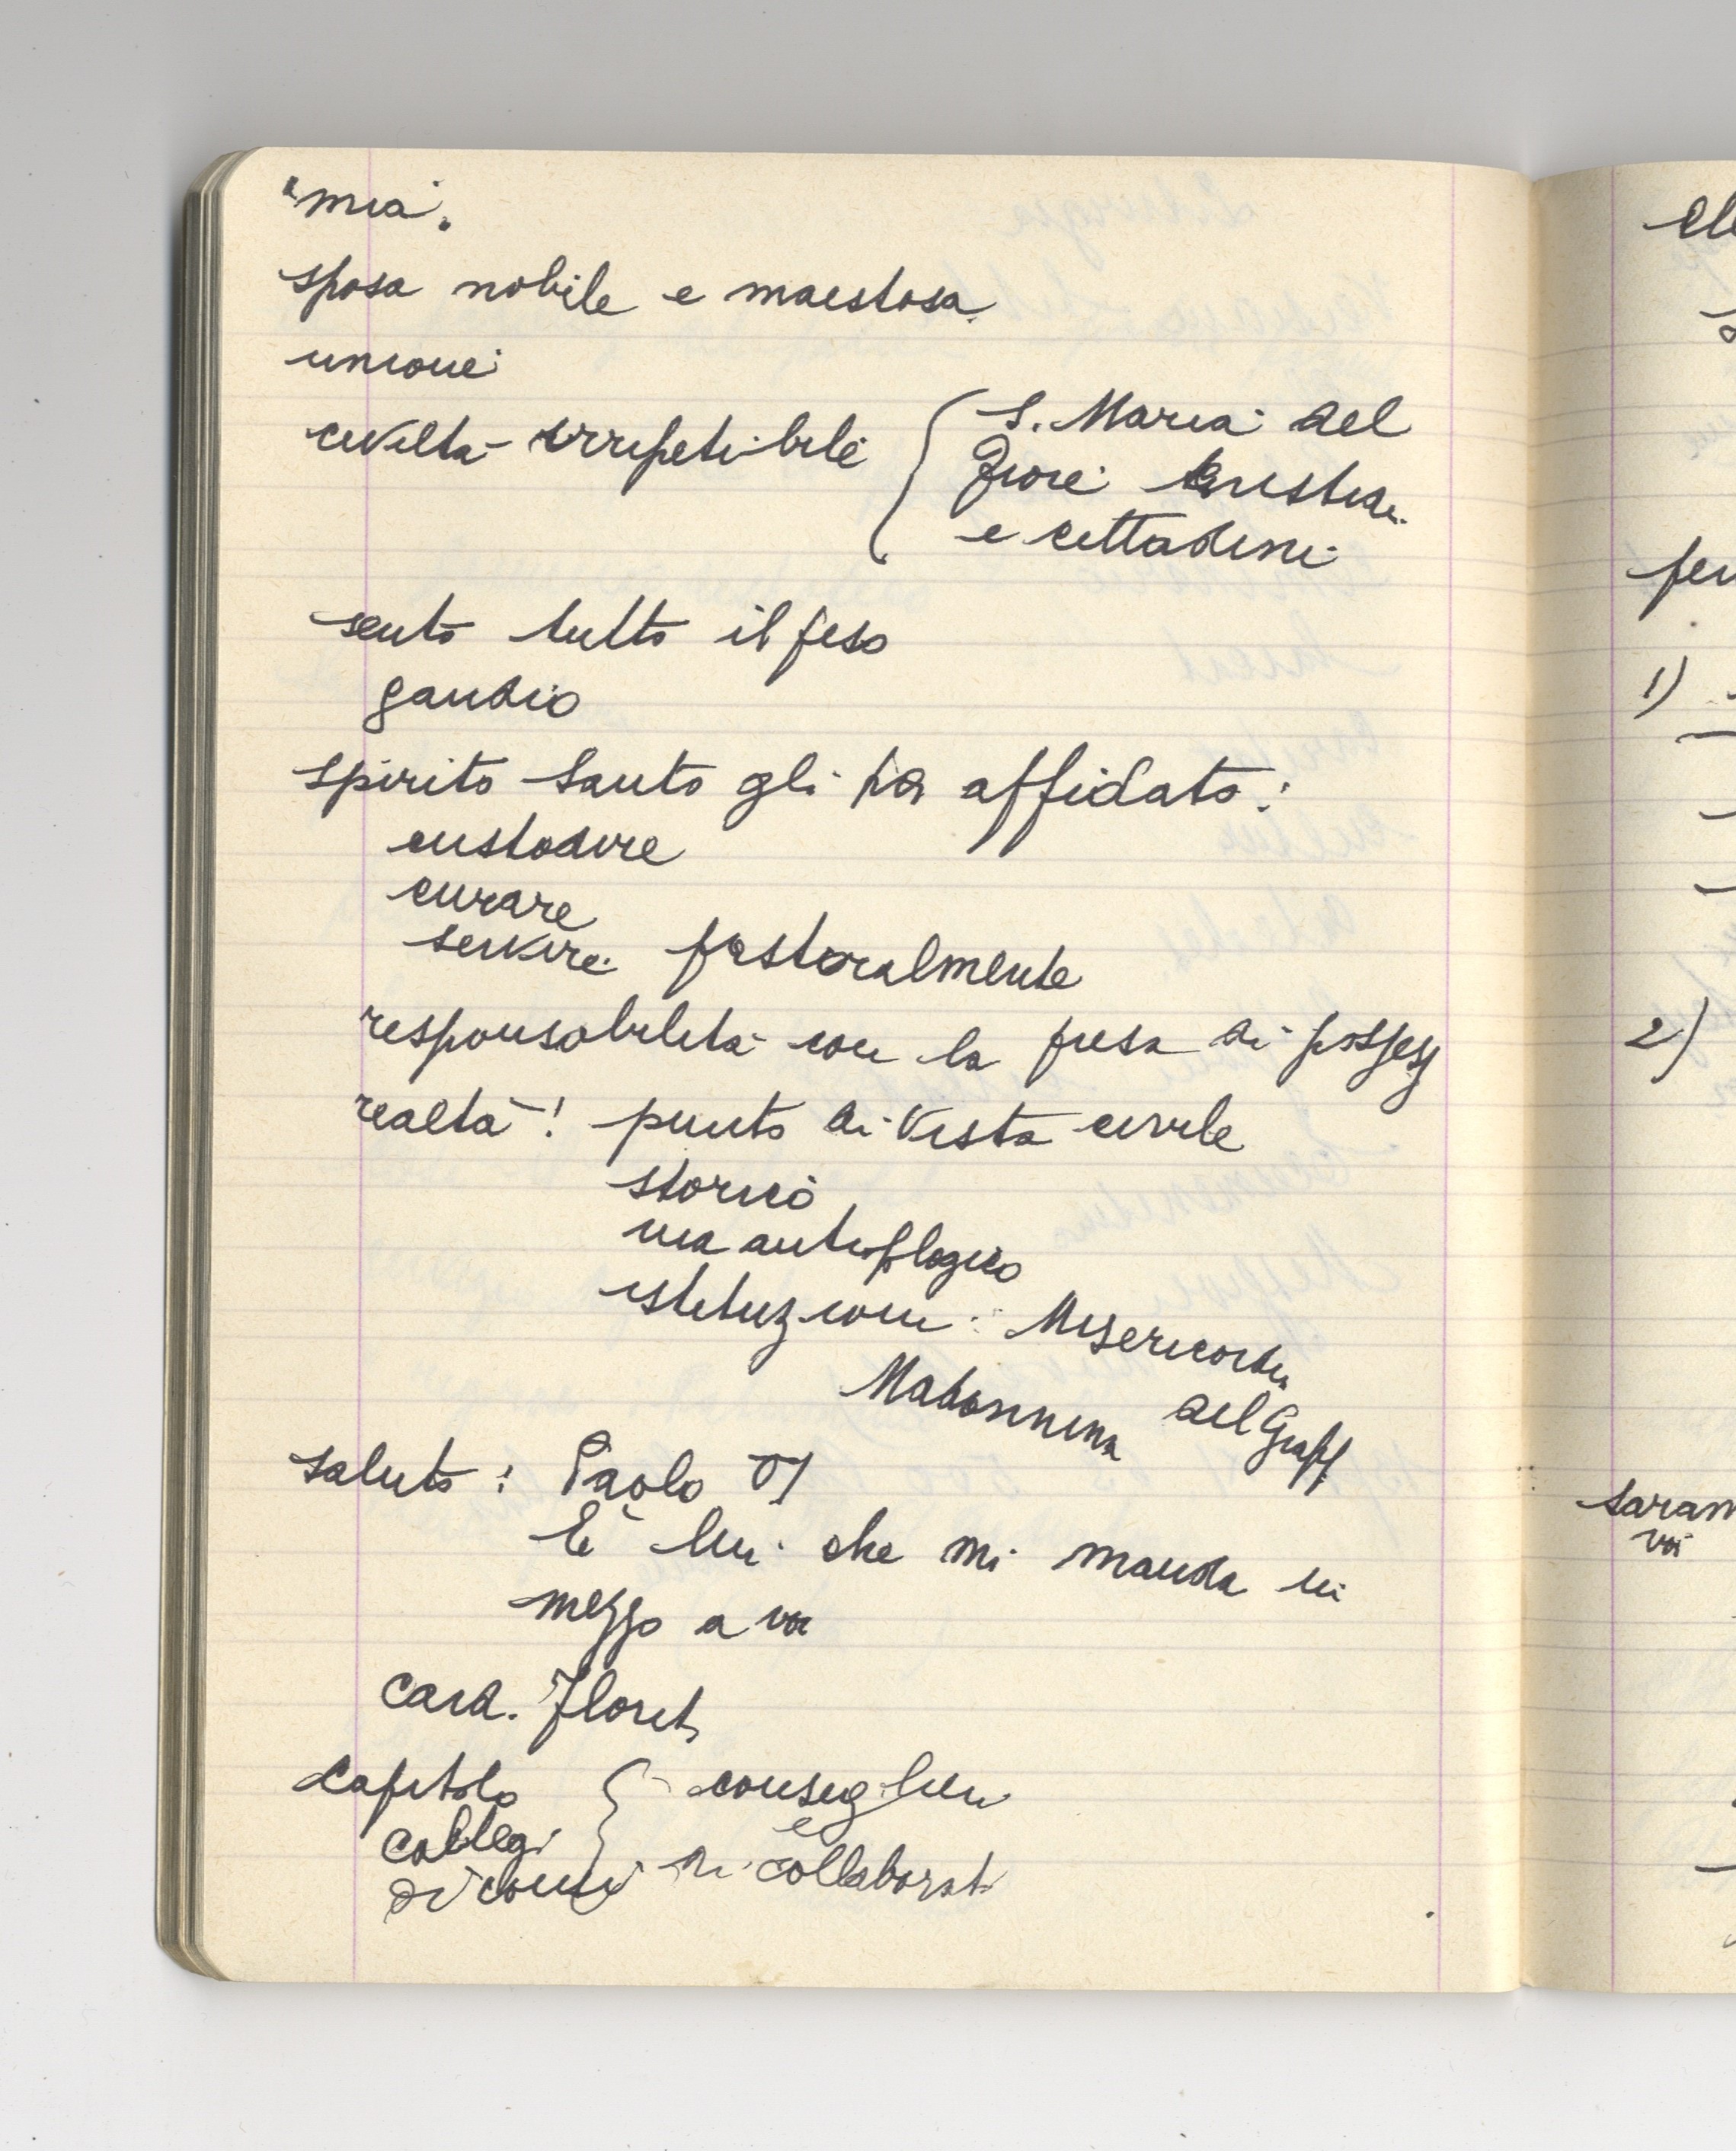 "mia".
sposa nobile e maestosa.
unione
civiltà irripetibile
S. Maria del
Fiore cristia.
e cittadini
sento tutto il peso
gaudio
spirito Santo gli ha affidato:
custodire
curare
servire pastoralmente
responsabilità con la presa di possess
realtà! punto di vista civile
storico
ma antropologico
istituzioni: Misericordia
Madonnina del Grapp
saluto: Paolo VI
È lui che mi manda in
mezzo a voi
card. Florit
capitolo
consiglieri
collegi
e
collaborat
ele
1)
2)
saran
voi